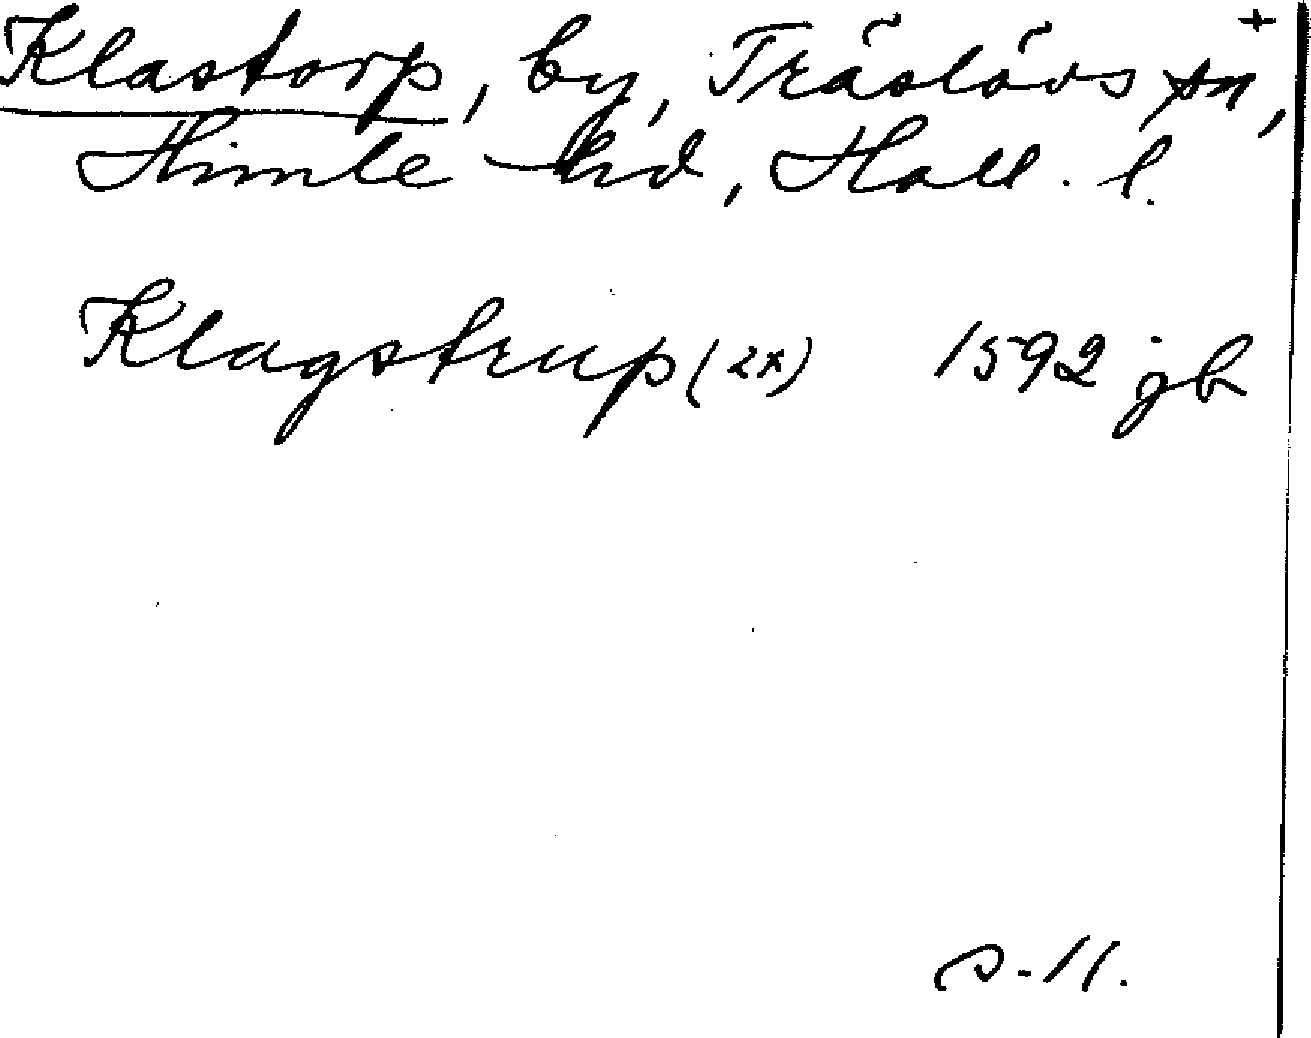 Klastorp, by, Träslövs sn, +
Himle hd, Hall. l.
Klagstrup (2x) 1592 jb
s. 11.